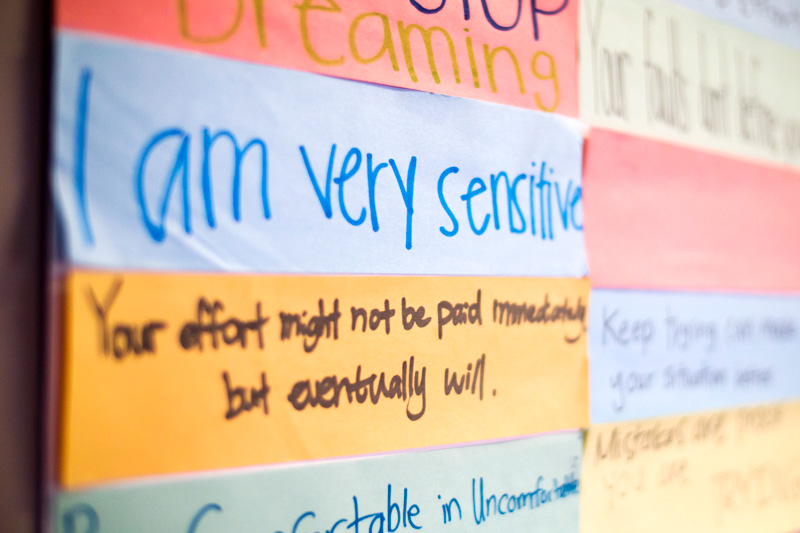 STOP
Dreaming
I am very sensitive
Your effort might not be paid immediately
but eventually will.
Comfortable in Uncomfortable
Your faults don't define
Keep trying can make
your situation
Mistakes are proof
you are TRYING